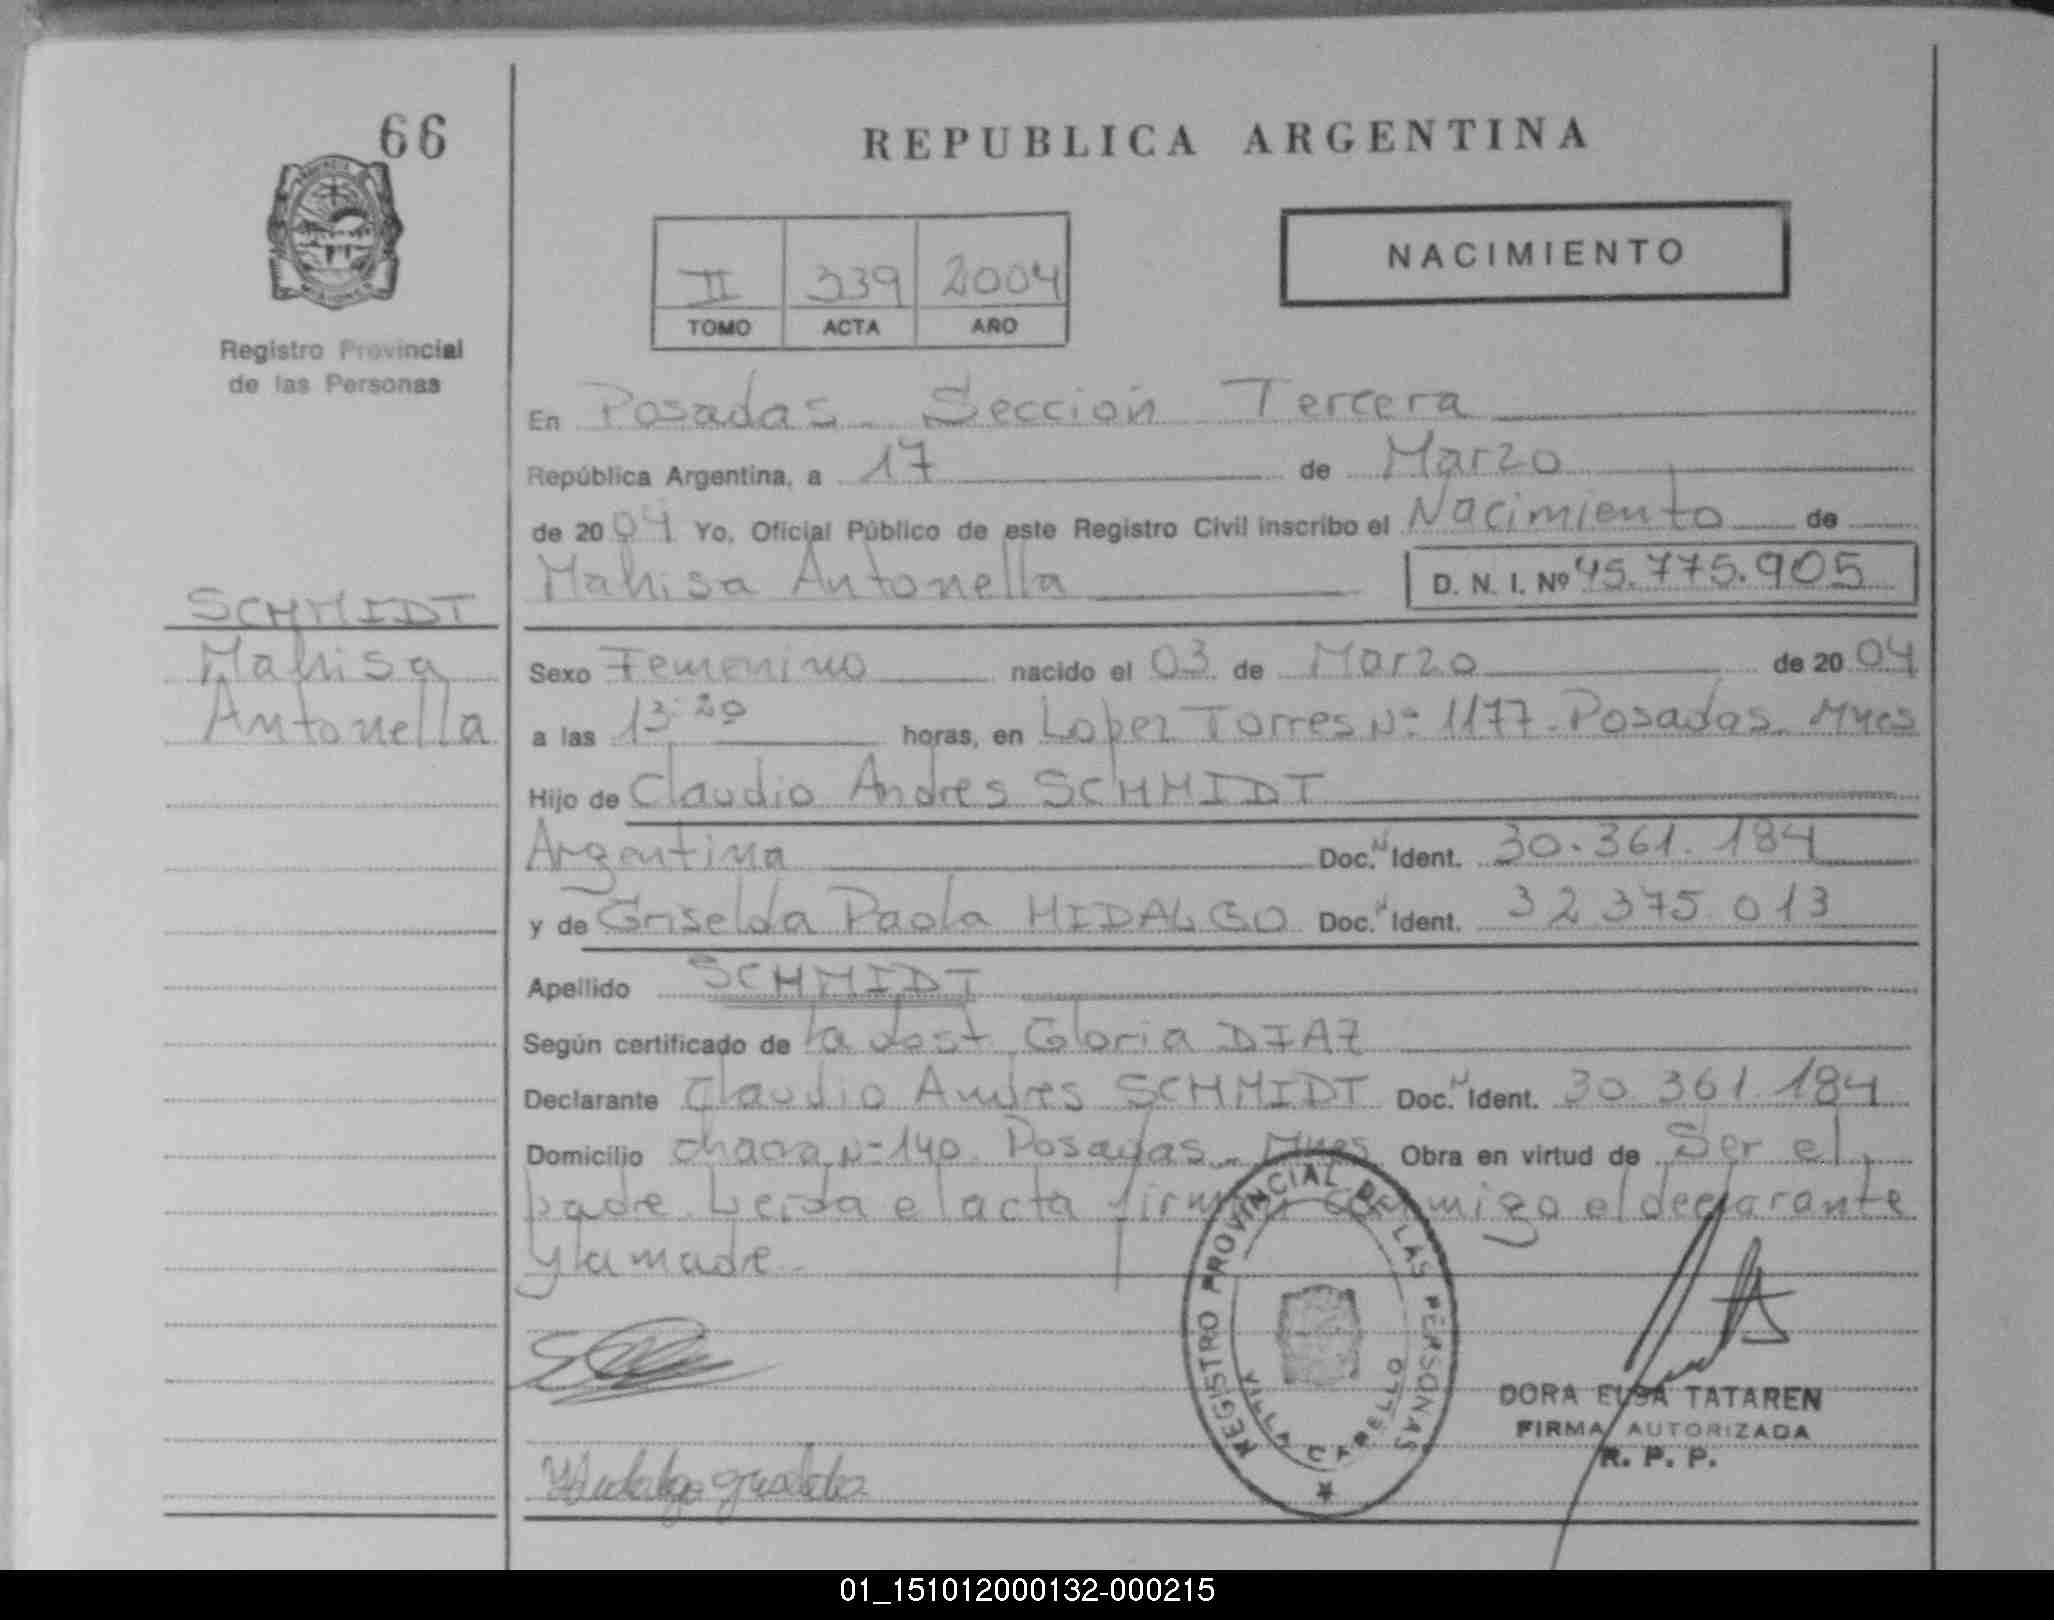 66
REPUBLICA ARGENTINA
NACIMIENTO
II 339 2004
TOMO ACTA AÑO
Registro Provincial
de las Personas
En Posadas - Sección Tercera
República Argentina, a 17 de Marzo
de 2004 Yo, Oficial Público de este Registro Civil inscribo el Nacimiento de
Mahisa Antonella D. N. I. Nº 45.775.905
SCHMIDT
Mahisa
Antonella
Sexo Femenino nacido el 03 de Marzo de 2004
a las 13:20 horas, en Lopez Torres Nº 1177 - Posadas - Mnes
Hijo de Claudio Andres SCHMIDT
Argentina Doc. N Ident. 30.361.184
y de Griselda Paola HIDALGO Doc. N Ident. 32.375.013
Apellido SCHMIDT
Según certificado de la obst Gloria DIAZ
Declarante Claudio Andres SCHMIDT Doc. N Ident. 30.361.184
Domicilio chacra Nº 140. Posadas - Mnes Obra en virtud de Ser el
padre. Leida el acta firman conmigo el declarante
y la madre.
REGISTRO PROVINCIAL DE LAS PERSONAS
VILLA CABELLO
DORA ELSA TATAREN
FIRMA AUTORIZADA
R. P. P.
Hidalgo Griselda
01_151012000132-000215